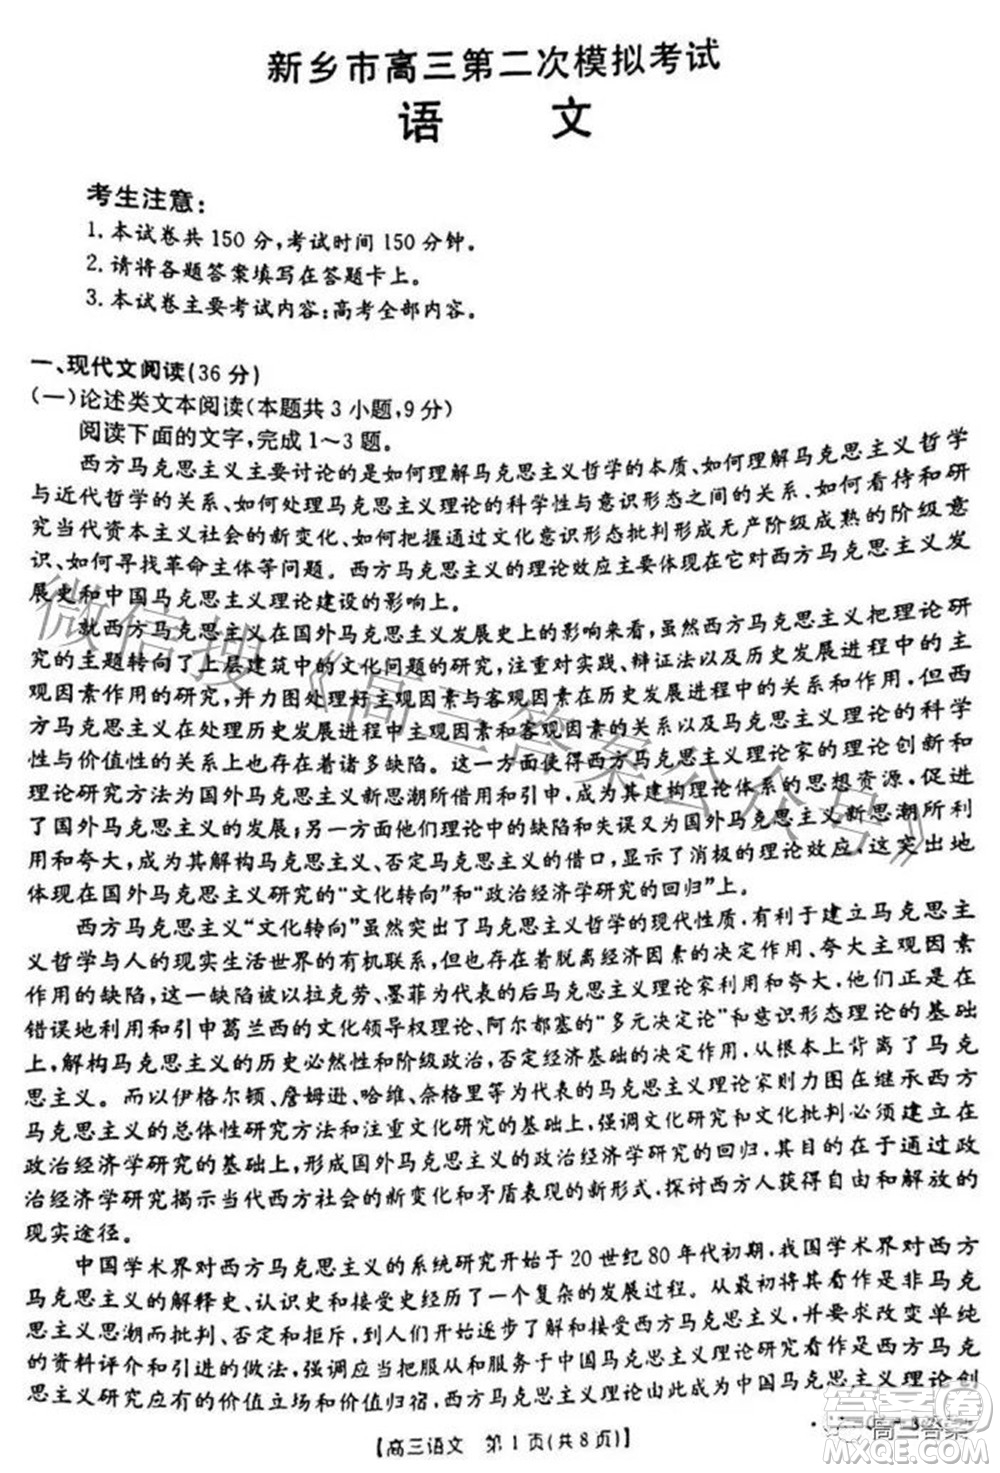 新乡市高三第二次模拟考试
语 文
考生注意：
1. 本试卷共 150 分，考试时间 150 分钟。
2. 请将各题答案填写在答题卡上。
3. 本试卷主要考试内容：高考全部内容。
一、现代文阅读(36 分)
(一)论述类文本阅读(本题共 3 小题，9 分)
阅读下面的文字，完成 1～3 题。
西方马克思主义主要讨论的是如何理解马克思主义哲学的本质、如何理解马克思主义哲学
与近代哲学的关系、如何处理马克思主义理论的科学性与意识形态之间的关系、如何看待和研
究当代资本主义社会的新变化、如何把握通过文化意识形态批判形成无产阶级成熟的阶级意
识、如何寻找革命主体等问题。西方马克思主义的理论效应主要体现在它对西方马克思主义发
展史和中国马克思主义理论建设的影响上。
就西方马克思主义在国外马克思主义发展史上的影响来看，虽然西方马克思主义把理论研
究的主题转向了上层建筑中的文化问题的研究，注重对实践、辩证法以及历史发展进程中的主
观因素作用的研究，并力图处理好主观因素与客观因素在历史发展进程中的关系和作用，但西
方马克思主义在处理历史发展的主观因素和客观因素的关系以及马克思主义理论的科学
性与价值性的关系上存在着诸多缺陷。这一方面使得西方马克思主义理论家的理论创新和
理论研究方法为国外马克思主义新思潮所借用和发挥，成为其建构理论体系的思想资源，促进
了国外马克思主义的发展；另一方面他们理论中的缺陷和失误又为国外马克思主义新思潮所利
用和夸大，成为其解构马克思主义、否定马克思主义的借口，显示了消极的理论效应，这突出地
体现在国外马克思主义研究的“文化转向”和“政治经济学研究的回归”上。
西方马克思主义“文化转向”虽然突出了马克思主义哲学的现代性质，有利于建立马克思主
义哲学与人的现实生活世界的有机联系，但存在着脱离经济基础的决定作用、夸大主观因素
作用的缺陷，这一缺陷被以拉克劳、墨菲为代表的后马克思主义理论家利用和夸大，他们正是在
错误地利用和引申葛兰西的文化领导权理论、阿尔都塞的“多元决定论”和意识形态理论的基础
上，解构马克思主义的历史必然性和阶级政治，否定经济基础的决定作用，根本上背离了马克
思主义。而以伊格尔顿、詹姆逊、哈维、奈格里等为代表的马克思主义理论家则力图在继承西方
马克思主义的总体性研究方法和注重文化研究的基础上，强调文化研究和文化批判必须建立在
政治经济学研究的基础上，形成国外马克思主义的政治经济学研究的回归，其目的在于通过政
治经济学研究揭示当代西方社会的新变化和矛盾表现的新形式，探讨西方人获得自由和解放的
现实途径。
中国学术界对西方马克思主义的系统研究开始于 20 世纪 80 年代初期，我国学术界对西方
马克思主义的解释史、认识史和接受史经历了一个复杂的发展过程。从最初将其看作是非马克
思主义思潮而批判、否定和拒斥，到人们逐步了解和接受西方马克思主义，并要求改变单纯
的资料评介和引进的做法，强调应当把服从和服务于中国马克思主义理论研究看作是西方马克
思主义研究应有的价值立场和价值归宿，西方马克思主义理论由此成为中国马克思主义理论创
【高三语文 第 1 页(共 8 页)】
微信搜《高三答案公众号》
答案圈
高三答案